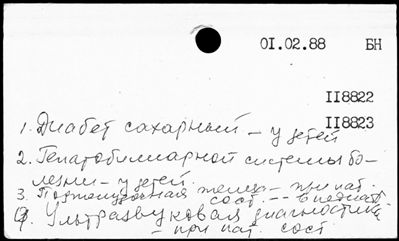 01.02.88 БН
II8822
II8823
1. Диабет сахарный – у детей
2. Гепатобилиарной системы бо-
лезни – у детей.
3. Поджелудочная железа – при пат.
сост. --
9. Ультразвуковая диагностика
– при пат. сост.